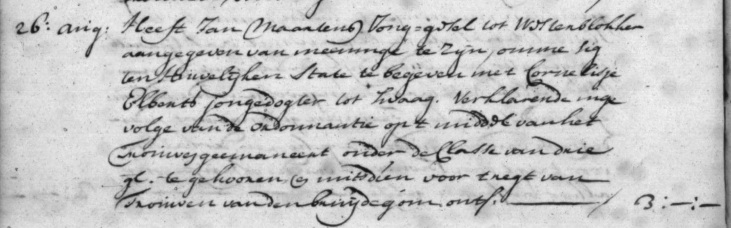 26: aug: Heeft Jan Maartensz Jong=gesel tot Westerblokker
aangegeven van meeninge te zijn, omme sig
ten Huwelijken State te begeven met Cornelisje
Elberts jongedogter tot Zwaag. Verklarende inge
volge van de Ordonnantie op 't middel van het
Trouwen geemaneert onder de Classe van drie
gl: te gehooren, & mitsdien voor 't regt van
Trouwen van den bruijdegom ontf: 3:—:—